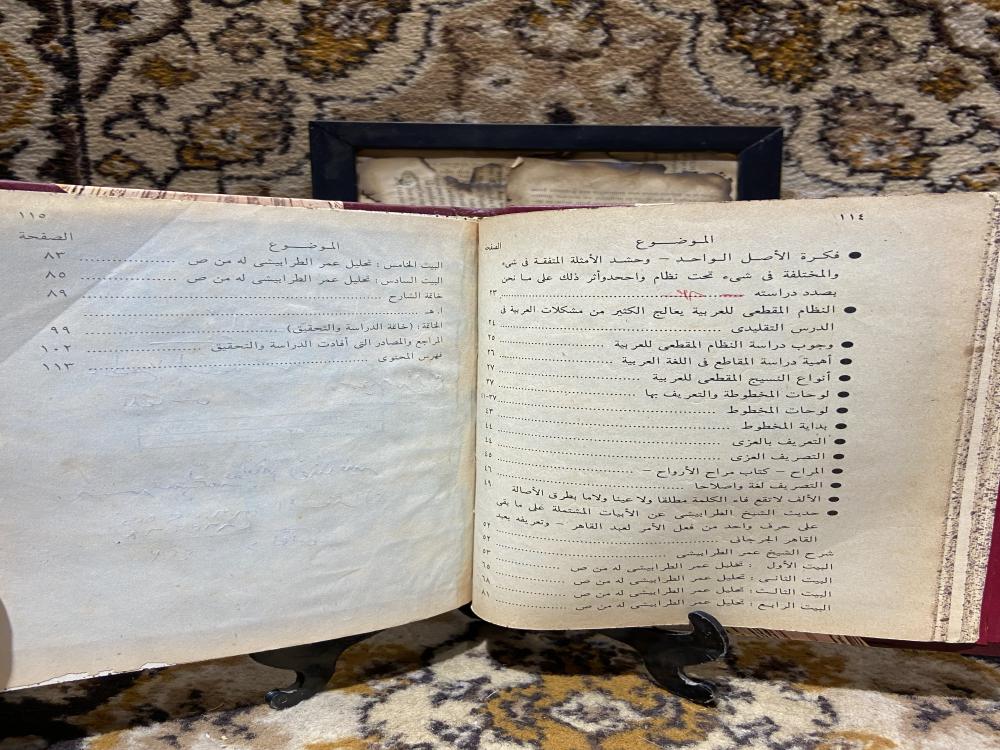 ١١٤
الموضوع
الصفحة
● فكرة الأصل الواحد – وحشد الأمثلة المتفقة فى شىء
والمختلفة فى شىء تحت نظام واححدوأثر ذلك على ما نحن
بصدد دراسته ٢٣
● النظام المقطعى للعربية يعالج الكثير من مشكلات العربية فى
الدرس التقليدى ٢٤
● وجوب دراسة النظام المقطعى للعربية ٢٥
● أهمية دراسة المقاطع فى اللغة العربية ٢٦
● أنواع النسيج المقطعى للعربية ٢٧
● لوحات المخطوطة والتعريف بها
● لوحات المخطوط ٤٣
● بداية المخطوط ٤٤
● التعريف بالعزى ٤٤
● التصريف العزى ٤٥
● المراح – كتاب مراح الأرواح – ٤٦
● التصريف لغة واصلاحا ٤٩
● الألف لاتقع فاء الكلمة مطلقا ولا عينا ولاما بطرق الأصالة
● حديث الشيخ الطرابيشى عن الأبيات المشتملة على ما بقى
على حرف واحد من فعل الأمر لعبد القاهر – وتعريفه بعبد
القاهر الجرجانى ٥٢
شرح الشيخ عمر الطرابيشى ٥٣
البيت الأول : تحليل عمر الطرابيشى له من ص ٦٥
البيت الثانى : تحليل عمر الطرابيشى له من ص ٦٨
البيت الثالث : تحليل عمر الطرابيشى له من ص ٨١
البيت الرابع : تحليل عمر الطرابيشى له من ص
١١٥
الموضوع الصفحة
البيت الخامس : تحليل عمر الطرابيشى له من ص ٨٣
البيت السادس : تحليل عمر الطرابيشى له من ص ٨٥
خاتمة الشارح ٨٩
ا. هـ
الخاتمة : (خاتمة الدراسة والتحقيق) ٩٩
المراجع والمصادر التى أفادت الدراسة والتحقيق ١٠٢
فهرس المحتوى ١١٣